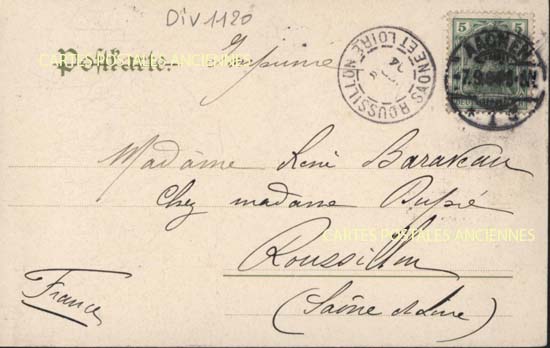 Div 1120
Postkarte.
Imprimé
5 5
AACHEN
ROUSSILLON
SAONE ET LOIRE
Madame René Baraveau
Chez madame Dupré
CARTES POSTALES ANCIENNES
CARTES POSTALES ANCIENNES
Roussillon
(Saône et Loire)
France